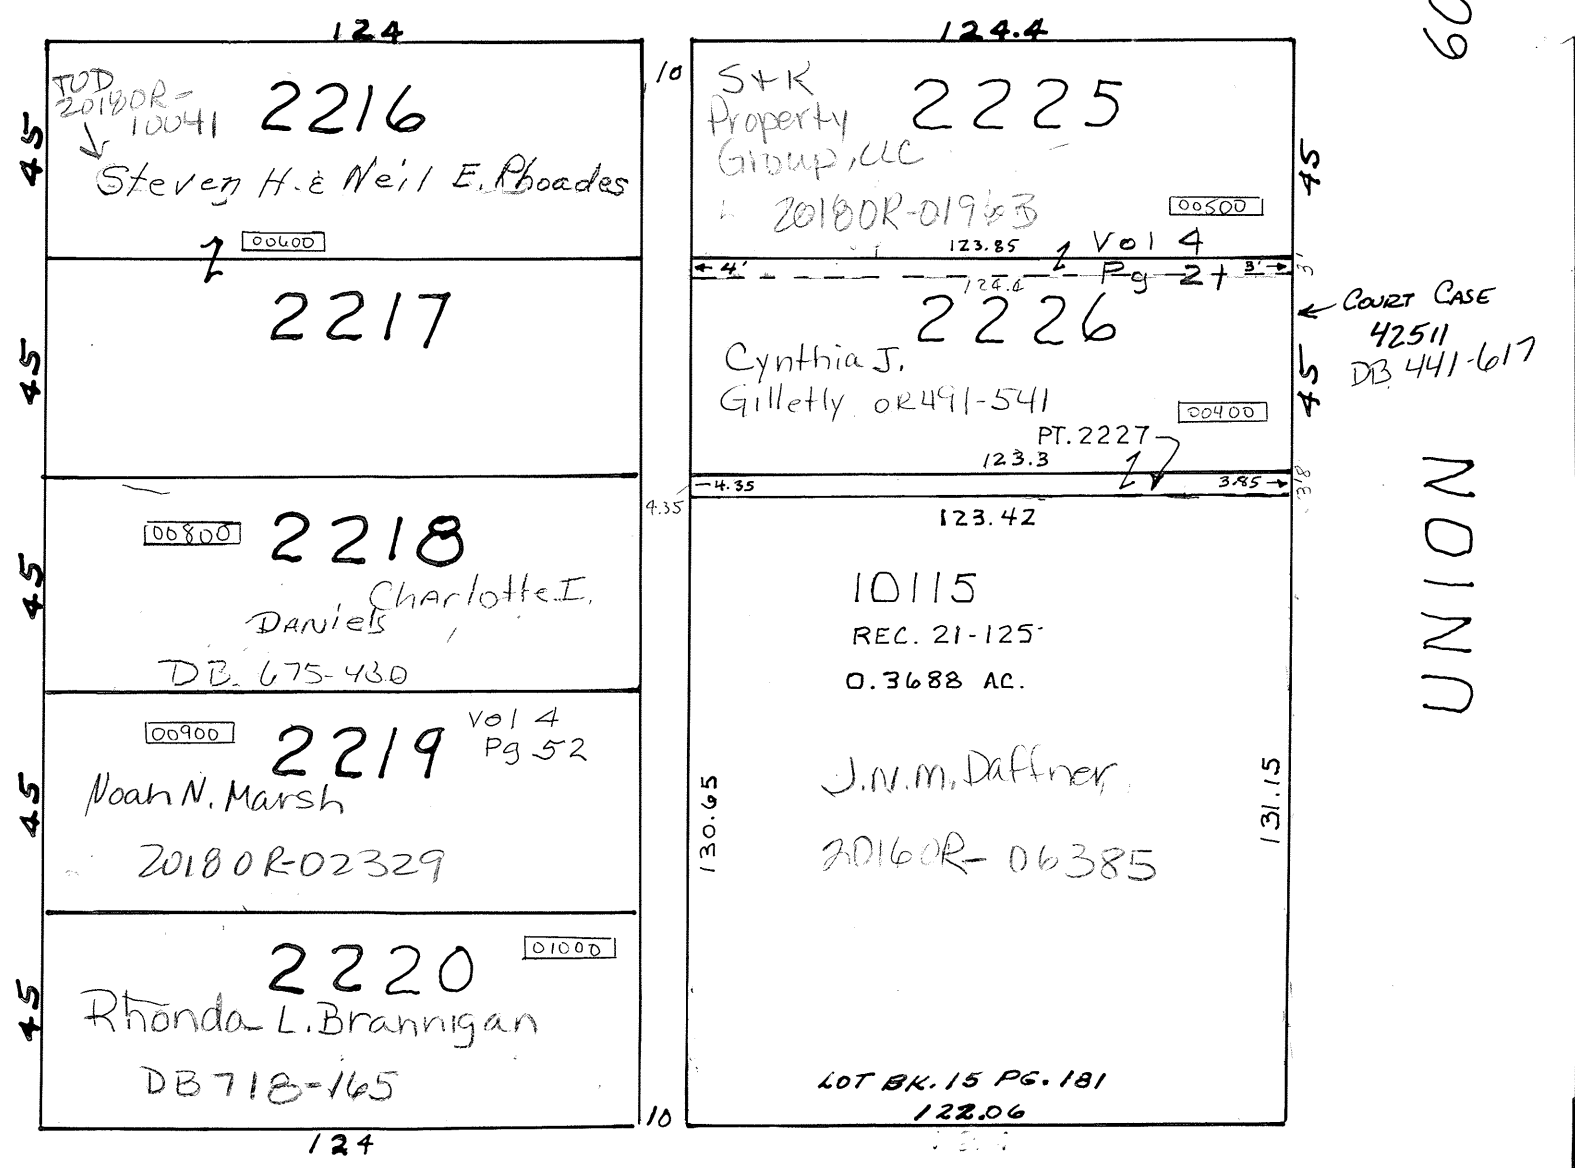 124
45
TOD
20180R-
10041
2216
Steven H. & Neil E. Rhoades
00600
45
2217
45
00800
2218
Charlotte I.
Daniels
DB. 675-430
45
00900
2219
Vol 4
Pg 52
Noah N. Marsh
20180R-02329
45
2220
01000
Rhonda L. Brannigan
DB 718-165
124
10
4.35
10
124.4
S+K
Property
Group, LLC
2225
20180R-01963
00500
45
123.85
Vol 4
Pg 21
4'
3'
3'
124.4
2226
Cynthia J.
Gilletly OR491-541
00400
45
COURT CASE
42511
DB 441-617
PT. 2227
123.3
4.35
3.85
3.8
123.42
10115
REC. 21-125
0.3688 AC.
J.N.M. Daffner
20160R-06385
130.65
131.15
LOT BK. 15 PG. 181
122.06
60
UNION